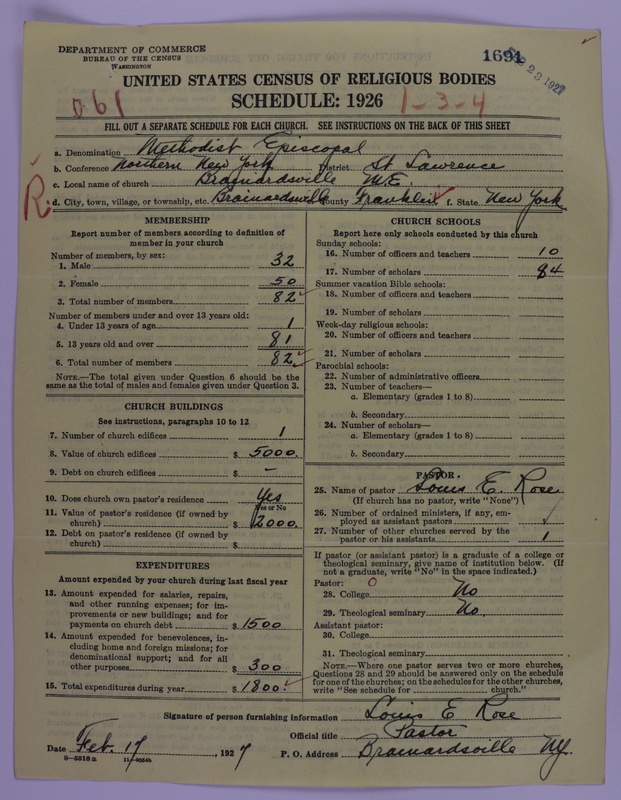 DEPARTMENT OF COMMERCE
BUREAU OF THE CENSUS
WASHINGTON
1691
23 1927
UNITED STATES CENSUS OF RELIGIOUS BODIES
SCHEDULE: 1926
061
1-3-4
FILL OUT A SEPARATE SCHEDULE FOR EACH CHURCH. SEE INSTRUCTIONS ON THE BACK OF THIS SHEET
a. Denomination Methodist Episcopal
b. Conference Northern New York District St Lawrence
c. Local name of church Brainardsville M.E.
R
d. City, town, village, or township, etc. Brainardsville County Franklin f. State New York
MEMBERSHIP
Report number of members according to definition of
member in your church
Number of members, by sex:
1. Male 32
2. Female 50
3. Total number of members 82
Number of members under and over 13 years old:
4. Under 13 years of age 1
5. 13 years old and over 81
6. Total number of members 82
NOTE.—The total given under Question 6 should be the
same as the total of males and females given under Question 3.
CHURCH BUILDINGS
See instructions, paragraphs 10 to 12
7. Number of church edifices 1
8. Value of church edifices $ 5000.
9. Debt on church edifices $ –
10. Does church own pastor's residence Yes
Yes or No
11. Value of pastor's residence (if owned by
church) $ 2000.
12. Debt on pastor's residence (if owned by
church) $
EXPENDITURES
Amount expended by your church during last fiscal year
13. Amount expended for salaries, repairs,
and other running expenses; for im-
provements or new buildings; and for
payments on church debt $ 1500
14. Amount expended for benevolences, in-
cluding home and foreign missions; for
denominational support; and for all
other purposes $ 300
15. Total expenditures during year $ 1800.
CHURCH SCHOOLS
Report here only schools conducted by this church
Sunday schools:
16. Number of officers and teachers 10
17. Number of scholars 84
Summer vacation Bible schools:
18. Number of officers and teachers
19. Number of scholars
Week-day religious schools:
20. Number of officers and teachers
21. Number of scholars
Parochial schools:
22. Number of administrative officers
23. Number of teachers—
a. Elementary (grades 1 to 8)
b. Secondary
24. Number of scholars—
a. Elementary (grades 1 to 8)
b. Secondary
PASTOR
25. Name of pastor Louis E. Rose
(If church has no pastor, write "None")
26. Number of ordained ministers, if any, em-
ployed as assistant pastors
27. Number of other churches served by the
pastor or his assistants 1
If pastor (or assistant pastor) is a graduate of a college or
theological seminary, give name of institution below. (If
not a graduate, write "No" in the space indicated.)
Pastor: 0
28. College No
29. Theological seminary No.
Assistant pastor:
30. College
31. Theological seminary
NOTE.—Where one pastor serves two or more churches,
Questions 28 and 29 should be answered only on the schedule
for one of the churches; on the schedules for the other churches,
write "See schedule for church."
Signature of person furnishing information Louis E Rose
Official title Pastor
Date Feb. 17, 1927 P. O. Address Brainardsville NY.